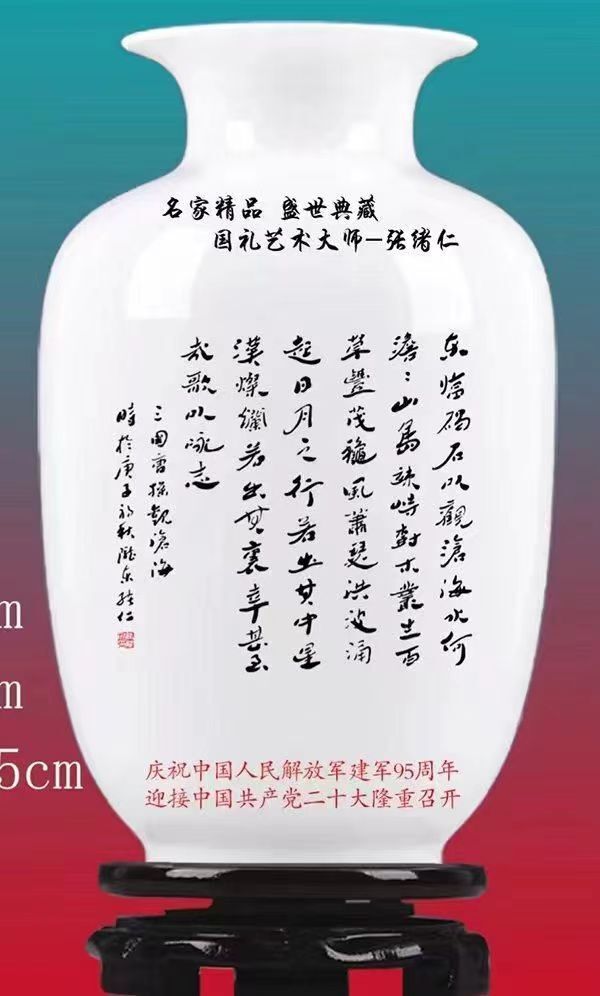 名家精品 盛世典藏
国礼艺术大师—张绪仁
东临碣石以觀滄海水何
澹々山島竦峙樹木叢生百
草豐茂穐風蕭瑟洪波涌
起日月之行若出其中星
漢燦爛若出其裏幸甚至
哉歌以咏志
三國曹操觀滄海
時於庚子初秋隴东绪仁
m
m
5cm
庆祝中国人民解放军建军95周年
迎接中国共产党二十大隆重召开